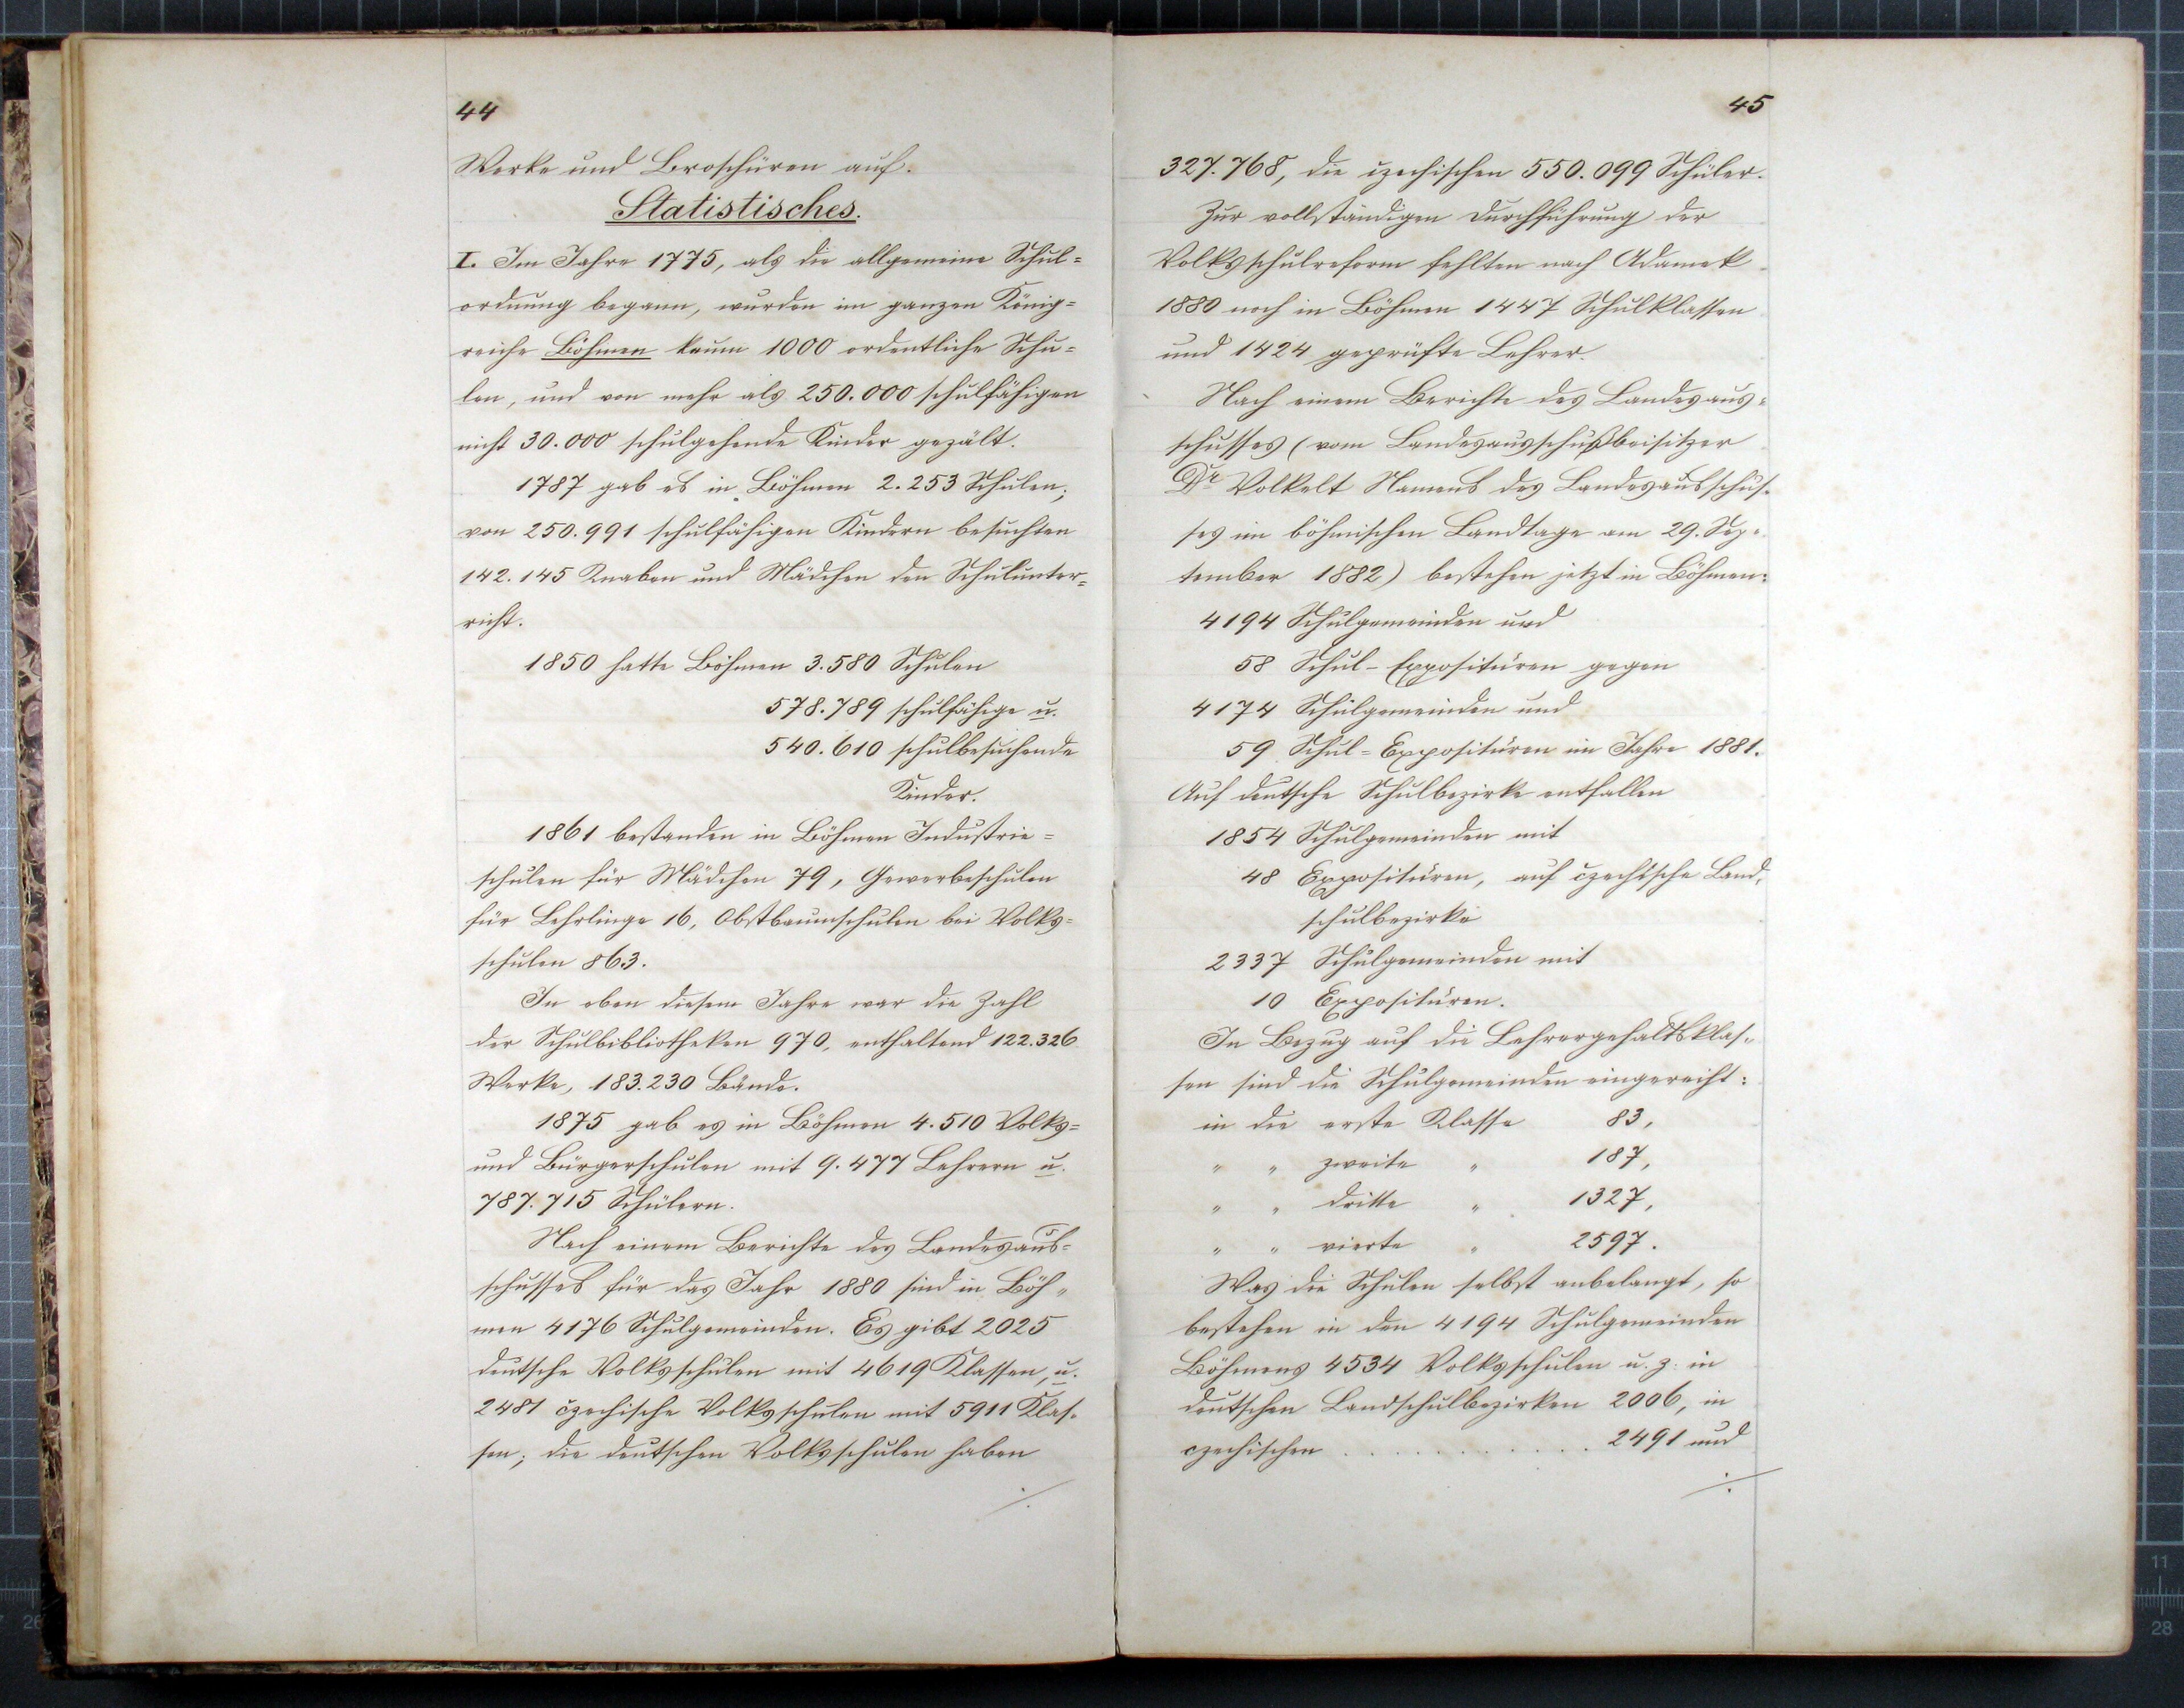 44
Werke und Broschüren auf.
Statistisches.
I. Im Jahre 1775, als die allgemeine Schul=
ordnung begann, wurden im ganzen König=
reiche Böhmen kaum 1000 ordentliche Schu=
len, und von mehr als 250.000 schulfähigen
nicht 30.000 schulgehende Kinder gezält.
1787 gab es in Böhmen 2.253 Schulen;
von 250.991 schulfähigen Kindern besuchten
142.145 Knaben und Mädchen den Schulunter=
richt.
1850 hatte Böhmen 3.580 Schulen
578.789 schulfähige u.
540.610 schulbesuchende
Kinder.
1861 bestanden in Böhmen Industrie=
schulen für Mädchen 79, Gewerbeschulen
für Lehrlinge 16, Obstbaumschulen bei Volks=
schulen 863.
In eben diesem Jahre war die Zahl
der Schulbibliotheken 970, enthaltend 122.326
Werke, 183.230 Bände.
1875 gab es in Böhmen 4.510 Volks=
und Bürgerschulen mit 9.477 Lehrern u.
787.715 Schülern.
Nach einem Berichte des Landesaus=
schusses für das Jahr 1880 sind in Böh=
men 4176 Schulgemeinden. Es gibt 2025
deutsche Volksschulen mit 4619 Klassen, u.
2481 čzechische Volksschulen mit 5911 Klas=
sen; die deutschen Volksschulen haben
./.
45
327.768, die čzechischen 550.099 Schüler.
Zur vollständigen Durchführung der
Volksschulreform fehlten nach Adamek
1880 noch in Böhmen 1447 Schulklassen
und 1424 geprüfte Lehrer.
Nach einem Berichte des Landesaus=
schusses (vom Landesausschußbeisitzer
Dr Volkelt Namens des Landesausschus=
ses im böhmischen Landtage am 29. Sep=
tember 1882) bestehen jetzt in Böhmen:
4194 Schulgemeinden und
58 Schul-Exposituren gegen
4174 Schulgemeinden und
59 Schul=Exposituren im Jahre 1881.
Auf deutsche Schulbezirke entfallen
1854 Schulgemeinden mit
48 Exposituren, auf čzechische Land=
schulbezirke
2337 Schulgemeinden mit
10 Exposituren.
In Bezug auf die Lehrergehaltsklas=
sen sind die Schulgemeinden eingereiht:
in die erste Klasse 83,
" " zweite " 187,
" " dritte " 1327,
" " vierte " 2597.
Was die Schulen selbst anbelangt, so
bestehen in den 4194 Schulgemeinden
Böhmens 4534 Volksschulen u. z. in
deutschen Landschulbezirken 2006, in
czechischen . . . . . . . . . . . 2491 und
./.
11
28
26